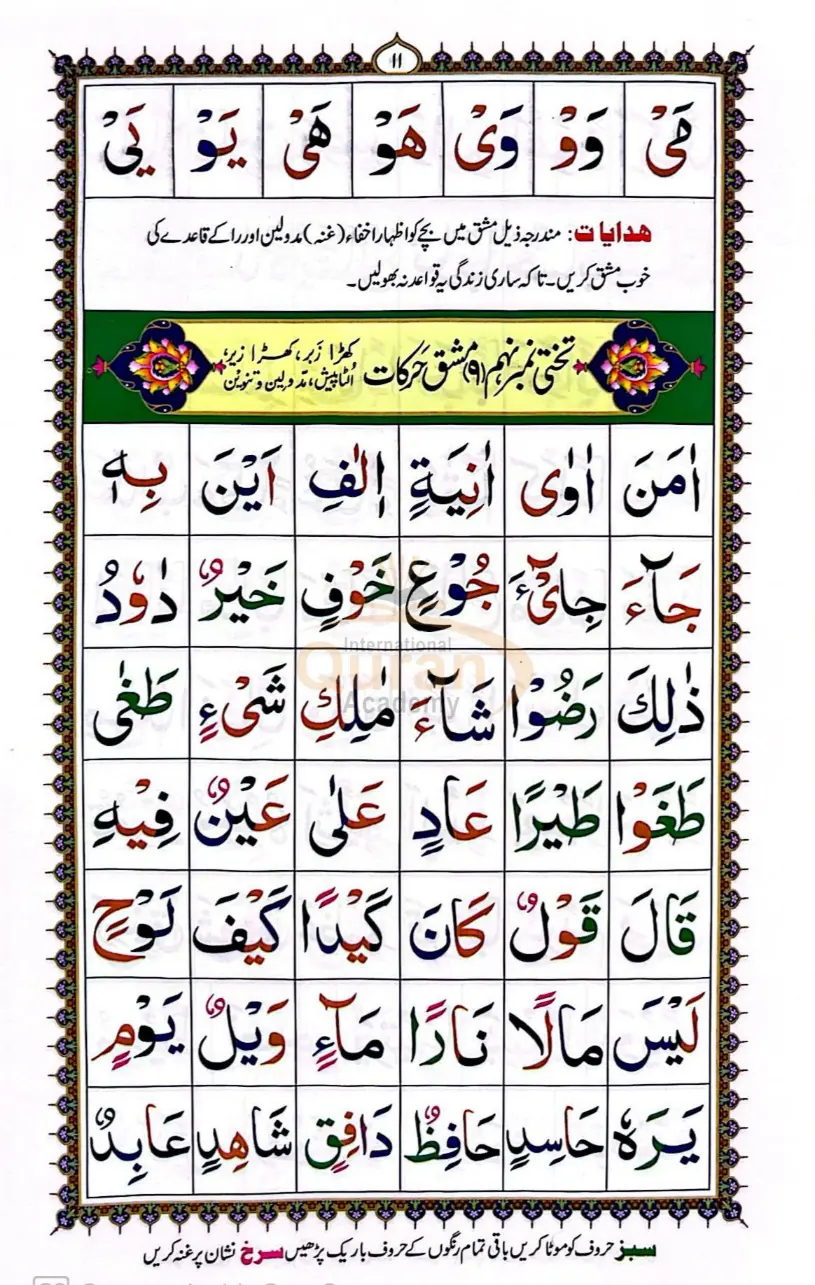 ١١
مَیْ وَوْ وَیْ هَوْ هَیْ یَوْ یَیْ
هدایات: مندرجہ ذیل مشق میں بچے کو اظہار اخفاء (غنہ) مدولین اور را کے قاعدے کی
خوب مشق کریں۔ تاکہ ساری زندگی یہ قواعد نہ بھولیں۔
تختی نمبر نہم (۹) مشق حرکات کھڑا زَبر، کھڑا زیر،
اُلٹا پیش، مدّ و لین و تنوین
اٰمَنَ اٰوٰی اٰنِیَةٍ اٖلٰفِ اَیْنَ بِهٖ
جَآءَ جِایْٓءَ جُوْعٍ خَوْفٍ خَیْرٌ دَاوٗدُ
ذٰلِكَ رَضُوْا شَآءَ مٰلِكِ شَیْءٍ طَغٰی
طَغَوْا طَیْرًا عَادٍ عَلٰی عَیْنٌ فِیْهِ
قَالَ قَوْلٌ كَانَ كَیْدًا كَیْفَ لَوْحٍ
لَیْسَ مَالًا نَارًا مَآءٍ وَیْلٌ یَوْمٍ
یَرَهٗ حَاسِدٍ حَافِظٌ دَافِقٍ شَاهِدٍ عَابِدٌ
International
Quran
Academy
سبز حروف کو موٹا کریں باقی تمام رنگوں کے حروف باریک پڑھیں سرخ نشان پر غنہ کریں